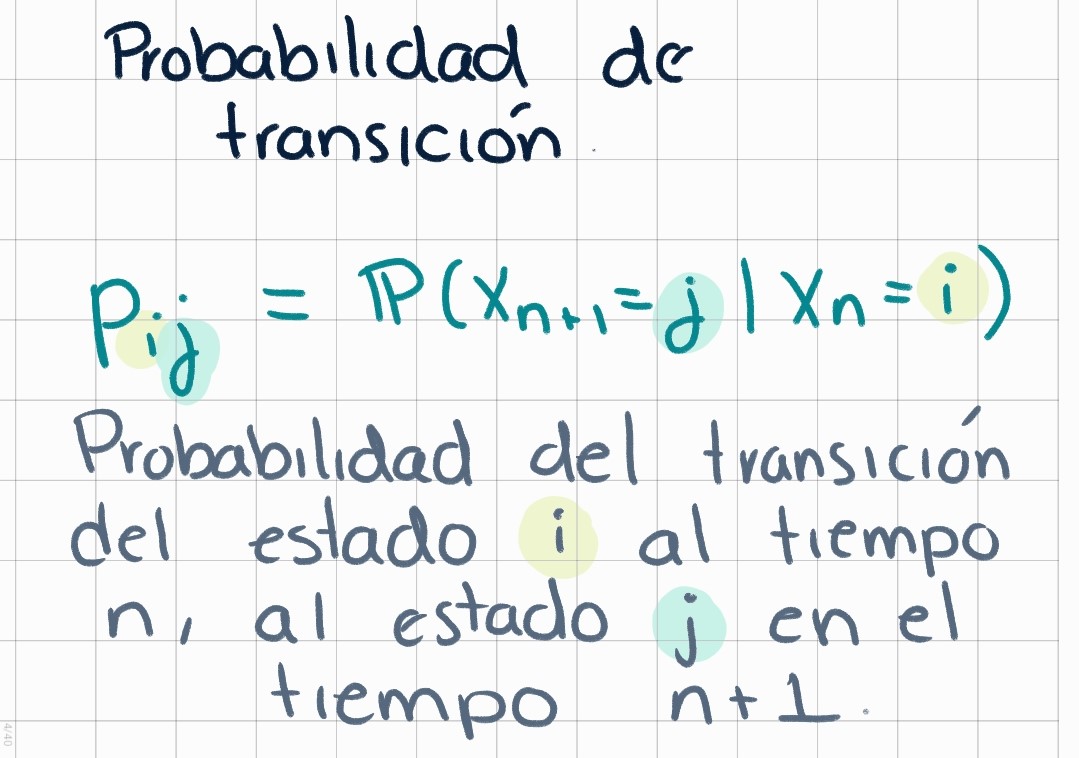 Probabilidad de
transición.
p_{ij} = ℙ(X_{n+1} = j | X_n = i)
Probabilidad del transición
del estado i al tiempo
n, al estado j en el
tiempo n+1.
4/40